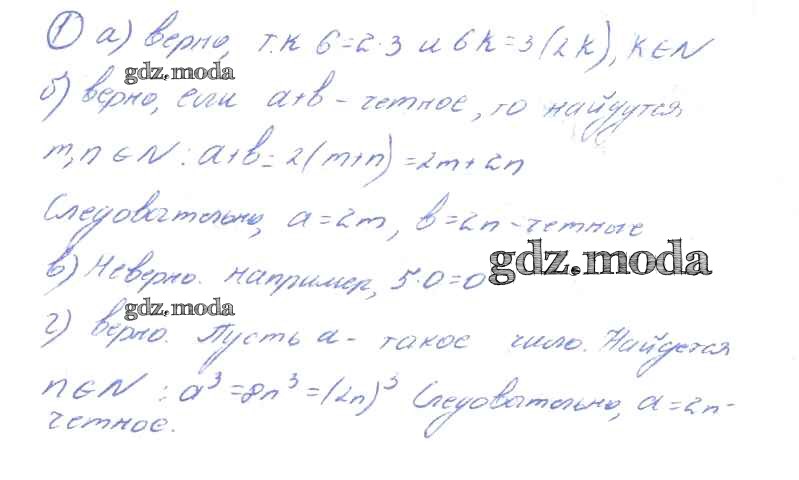 ① а) верно, т.к 6=2·3 и 6k=3(2k), k∈N
gdz.moda
б) верно, если a+b - четное, то найдутся
m,n∈N: a+b=2(m+n)=2m+2n
Следовательно, a=2m, b=2n-четные
gdz.moda
в) Неверно. например, 5·0=0
gdz.moda
г) верно. Пусть a - такое число. Найдется
n∈N: a³=8n³=(2n)³ Следовательно, a=2n-
четное.